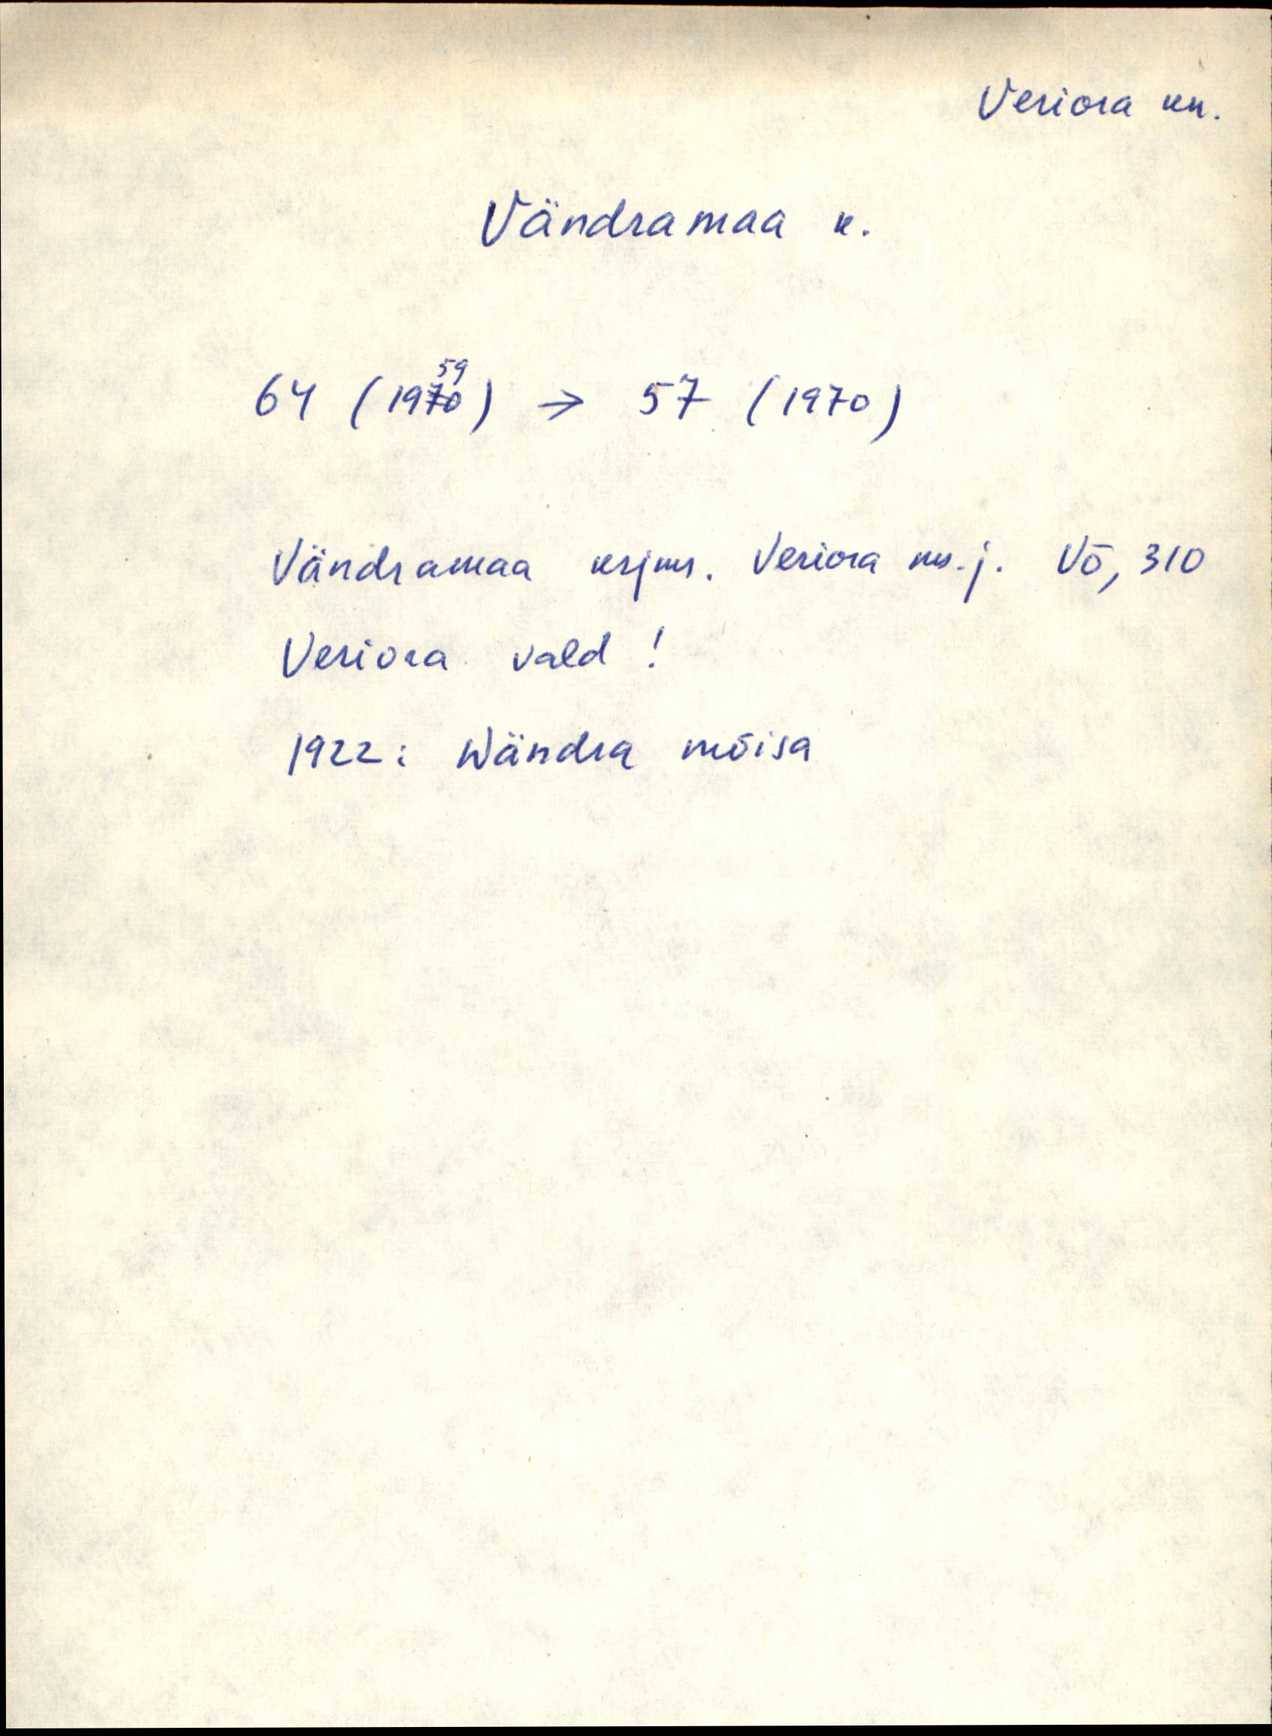 Veriora kn.
Vändramaa k.
64 (1959) → 57 (1970)
Vändramaa krjms. Veriora ms.j. Võ, 310
Veriora vald!
1922: Wändra mõisa